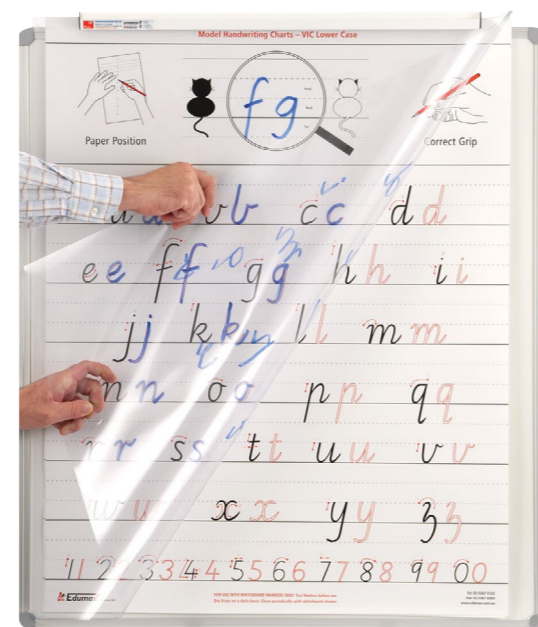 Model Handwriting Charts – VIC Lower Case
f g
Paper Position
Correct Grip
b b c c d d
e e f f g g h h i i
j j k k l l m m
n n o o p p q q
r r s s t t u u v v
w w x x y y z z
1 1 2 2 3 3 4 4 5 5 6 6 7 7 8 8 9 9 0 0